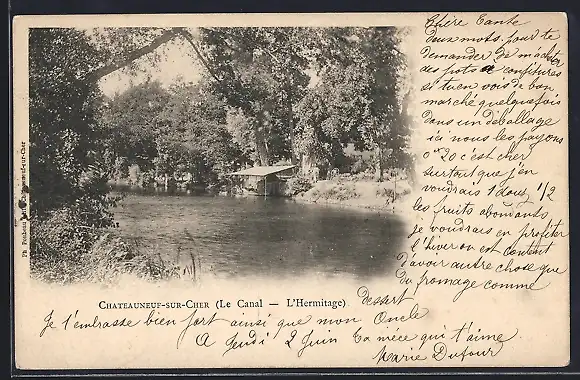 Chère Tante
Deux mots pour te
demander de m'acheter
des pots de confitures
si tu en vois de bon
marché quelquefois
dans un déballage
ici nous les payons
0 20 c'est cher
surtout que j'en
voudrais 1 douz 1/2
les fruits abondants
je voudrais en profiter
l'hiver on est content
d'avoir autre chose que
du fromage comme
dessert
CHATEAUNEUF-SUR-CHER (Le Canal — L'Hermitage)
Je t'embrasse bien fort ainsi que mon Oncle
A Jeudi 2 Juin ta nièce qui t'aime
Marie Dufour